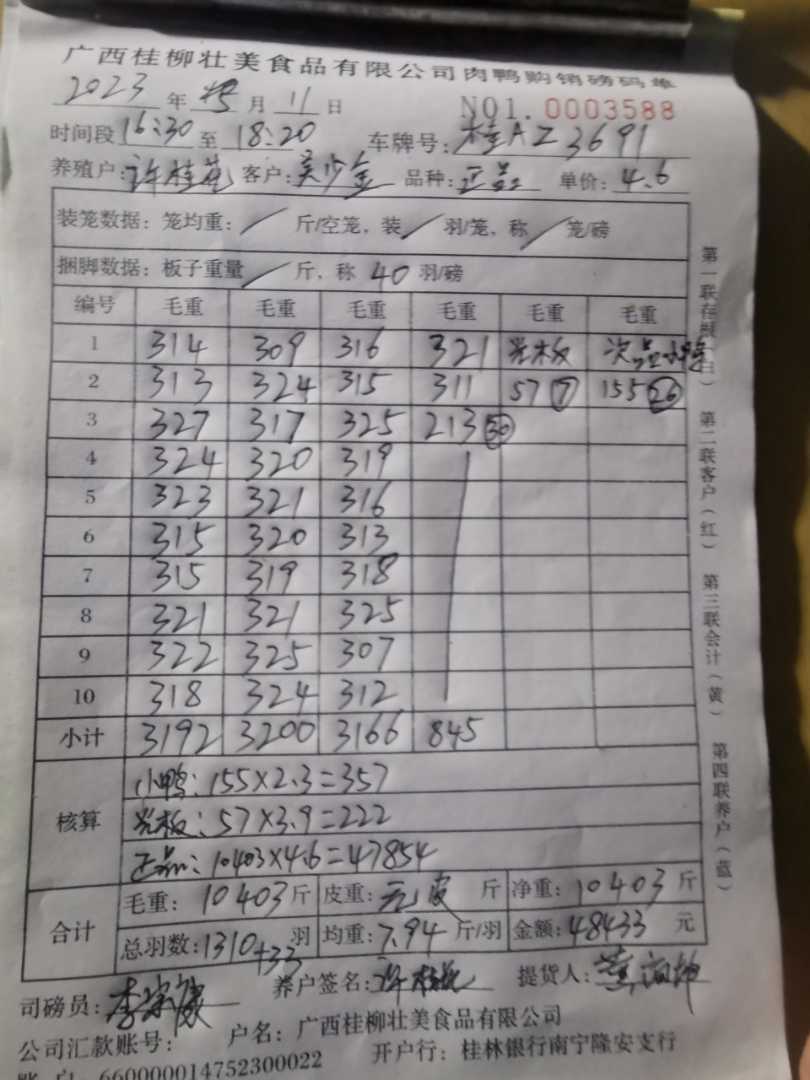 广西桂柳壮美食品有限公司肉鸭购销磅码单
2023 年 月 11 日 NO1. 0003588
时间段 16:30 至 18:20 车牌号: 桂AZ3691
养殖户: 许桂花 客户: 吴少金 品种: 正品 单价: 4.6
装笼数据: 笼均重: / 斤/空笼, 装 / 羽/笼, 称 / 笼/磅
捆脚数据: 板子重量 / 斤, 称 40 羽/磅
编号 毛重 毛重 毛重 毛重 毛重 毛重
1 314 309 316 321 光板 次品小鸭
2 313 324 315 311 57⑦ 155㉖
3 327 317 325 213㉚
4 324 320 319
5 323 321 316
6 315 320 313
7 315 319 318
8 321 321 325
9 322 325 307
10 318 324 312
小计 3192 3200 3166 845
核算
小鸭: 155×2.3=357
光板: 57×3.9=222
正品: 10403×4.6=47854
合计
毛重: 10403 斤 皮重: 无皮 斤 净重: 10403 斤
总羽数: 1310+33 羽 均重: 7.94 斤/羽 金额: 48433 元
司磅员: 养户签名: 许桂花 提货人:
公司汇款账号: 户名: 广西桂柳壮美食品有限公司
账户 660000014752300022 开户行: 桂林银行南宁隆安支行
第一联存根(白)
第二联客户(红)
第三联会计(黄)
第四联养户(蓝)